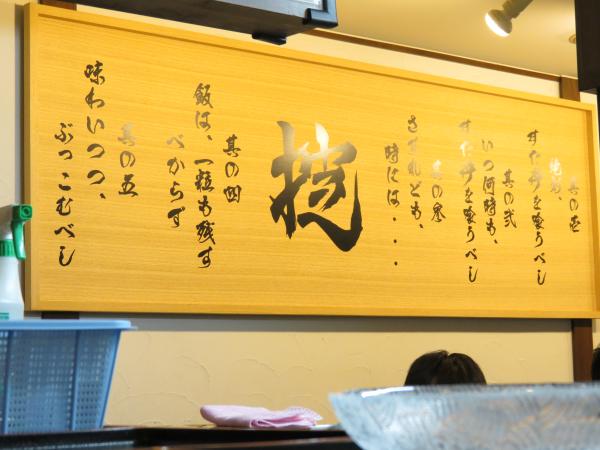 其の壱
絶対、
すた丼を喰うべし
其の弐
いつ何時も、
すた丼を喰うべし
其の参
されども、
時には・・・
掟
其の四
飯は、一粒も残す
べからず
其の五
味わいつつ、
ぶっこむべし